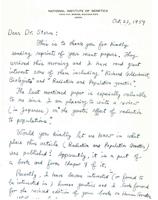 NATIONAL INSTITUTE OF GENETICS
Oct. 23, 1959
Dear Dr. Stern:
This is to thank you for kindly
sending reprints of your recent papers. They
arrived this morning and I have read with great
interest some of them including "Richard Goldschmidt,
Biologist" and "Radiation and Population Genetics".
The last mentioned paper is especially valuable
to me since I am planning to write a review
(in Japanese) on "the genetic effect of radiation
to populations".
Would you kindly let me know in what
place this article (Radiation and Population Genetics)
was published? Apparently, it is a part of
a book and from Chapter 8 of it.
Recently, I have become interested (or forced to
be interested in) human genetics and I look forward
for the revised edition of your book on Human Genetics